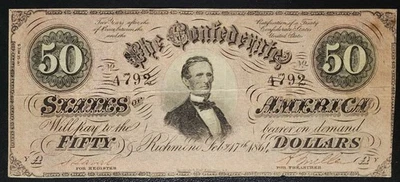 Two Years after the Ratification of a Treaty
of Peace between the Confederate States
and the United States
50 The Confederate 50
No 4792 No 4792
STATES OF AMERICA
Will pay to the bearer on demand
FIFTY DOLLARS
Richmond Feb 17th 1864
FOR REGISTER FOR TREASURER